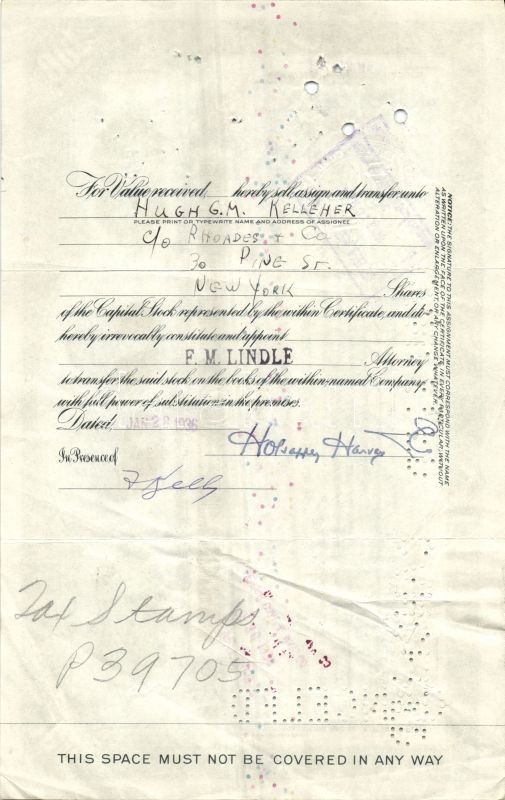 For Value received, hereby sell, assign and transfer unto
HUGH G.M. KELLEHER
PLEASE PRINT OR TYPEWRITE NAME AND ADDRESS OF ASSIGNEE
c/o RHOADES + Co
30 PINE ST.
NEW YORK Shares
of the Capital Stock represented by the within Certificate, and do
hereby irrevocably constitute and appoint
F. M. LINDLE Attorney
to transfer the said stock on the books of the within-named Company
with full power of substitution in the premises.
Dated JAN 28
In Presence of
NOTICE: THE SIGNATURE TO THIS ASSIGNMENT MUST CORRESPOND WITH THE NAME
AS WRITTEN UPON THE FACE OF THE CERTIFICATE IN EVERY PARTICULAR, WITHOUT
ALTERATION OR ENLARGEMENT, OR ANY CHANGE WHATEVER.
Tax Stamps
P39705
THIS SPACE MUST NOT BE COVERED IN ANY WAY